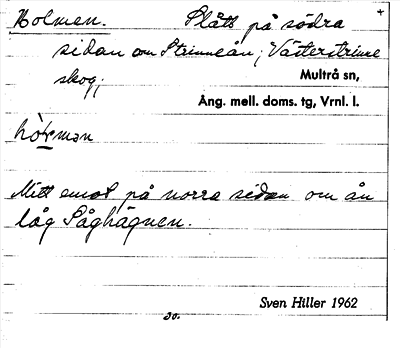 Holmen. Slått på södra
sidan om Strinneån; Västerstrinne
skog;
Multrå sn,
Ång. mell. doms. tg, Vrnl. l.
Mitt emot på norra sidan om ån
låg Såghägnen.
Sven Hiller 1962
30.